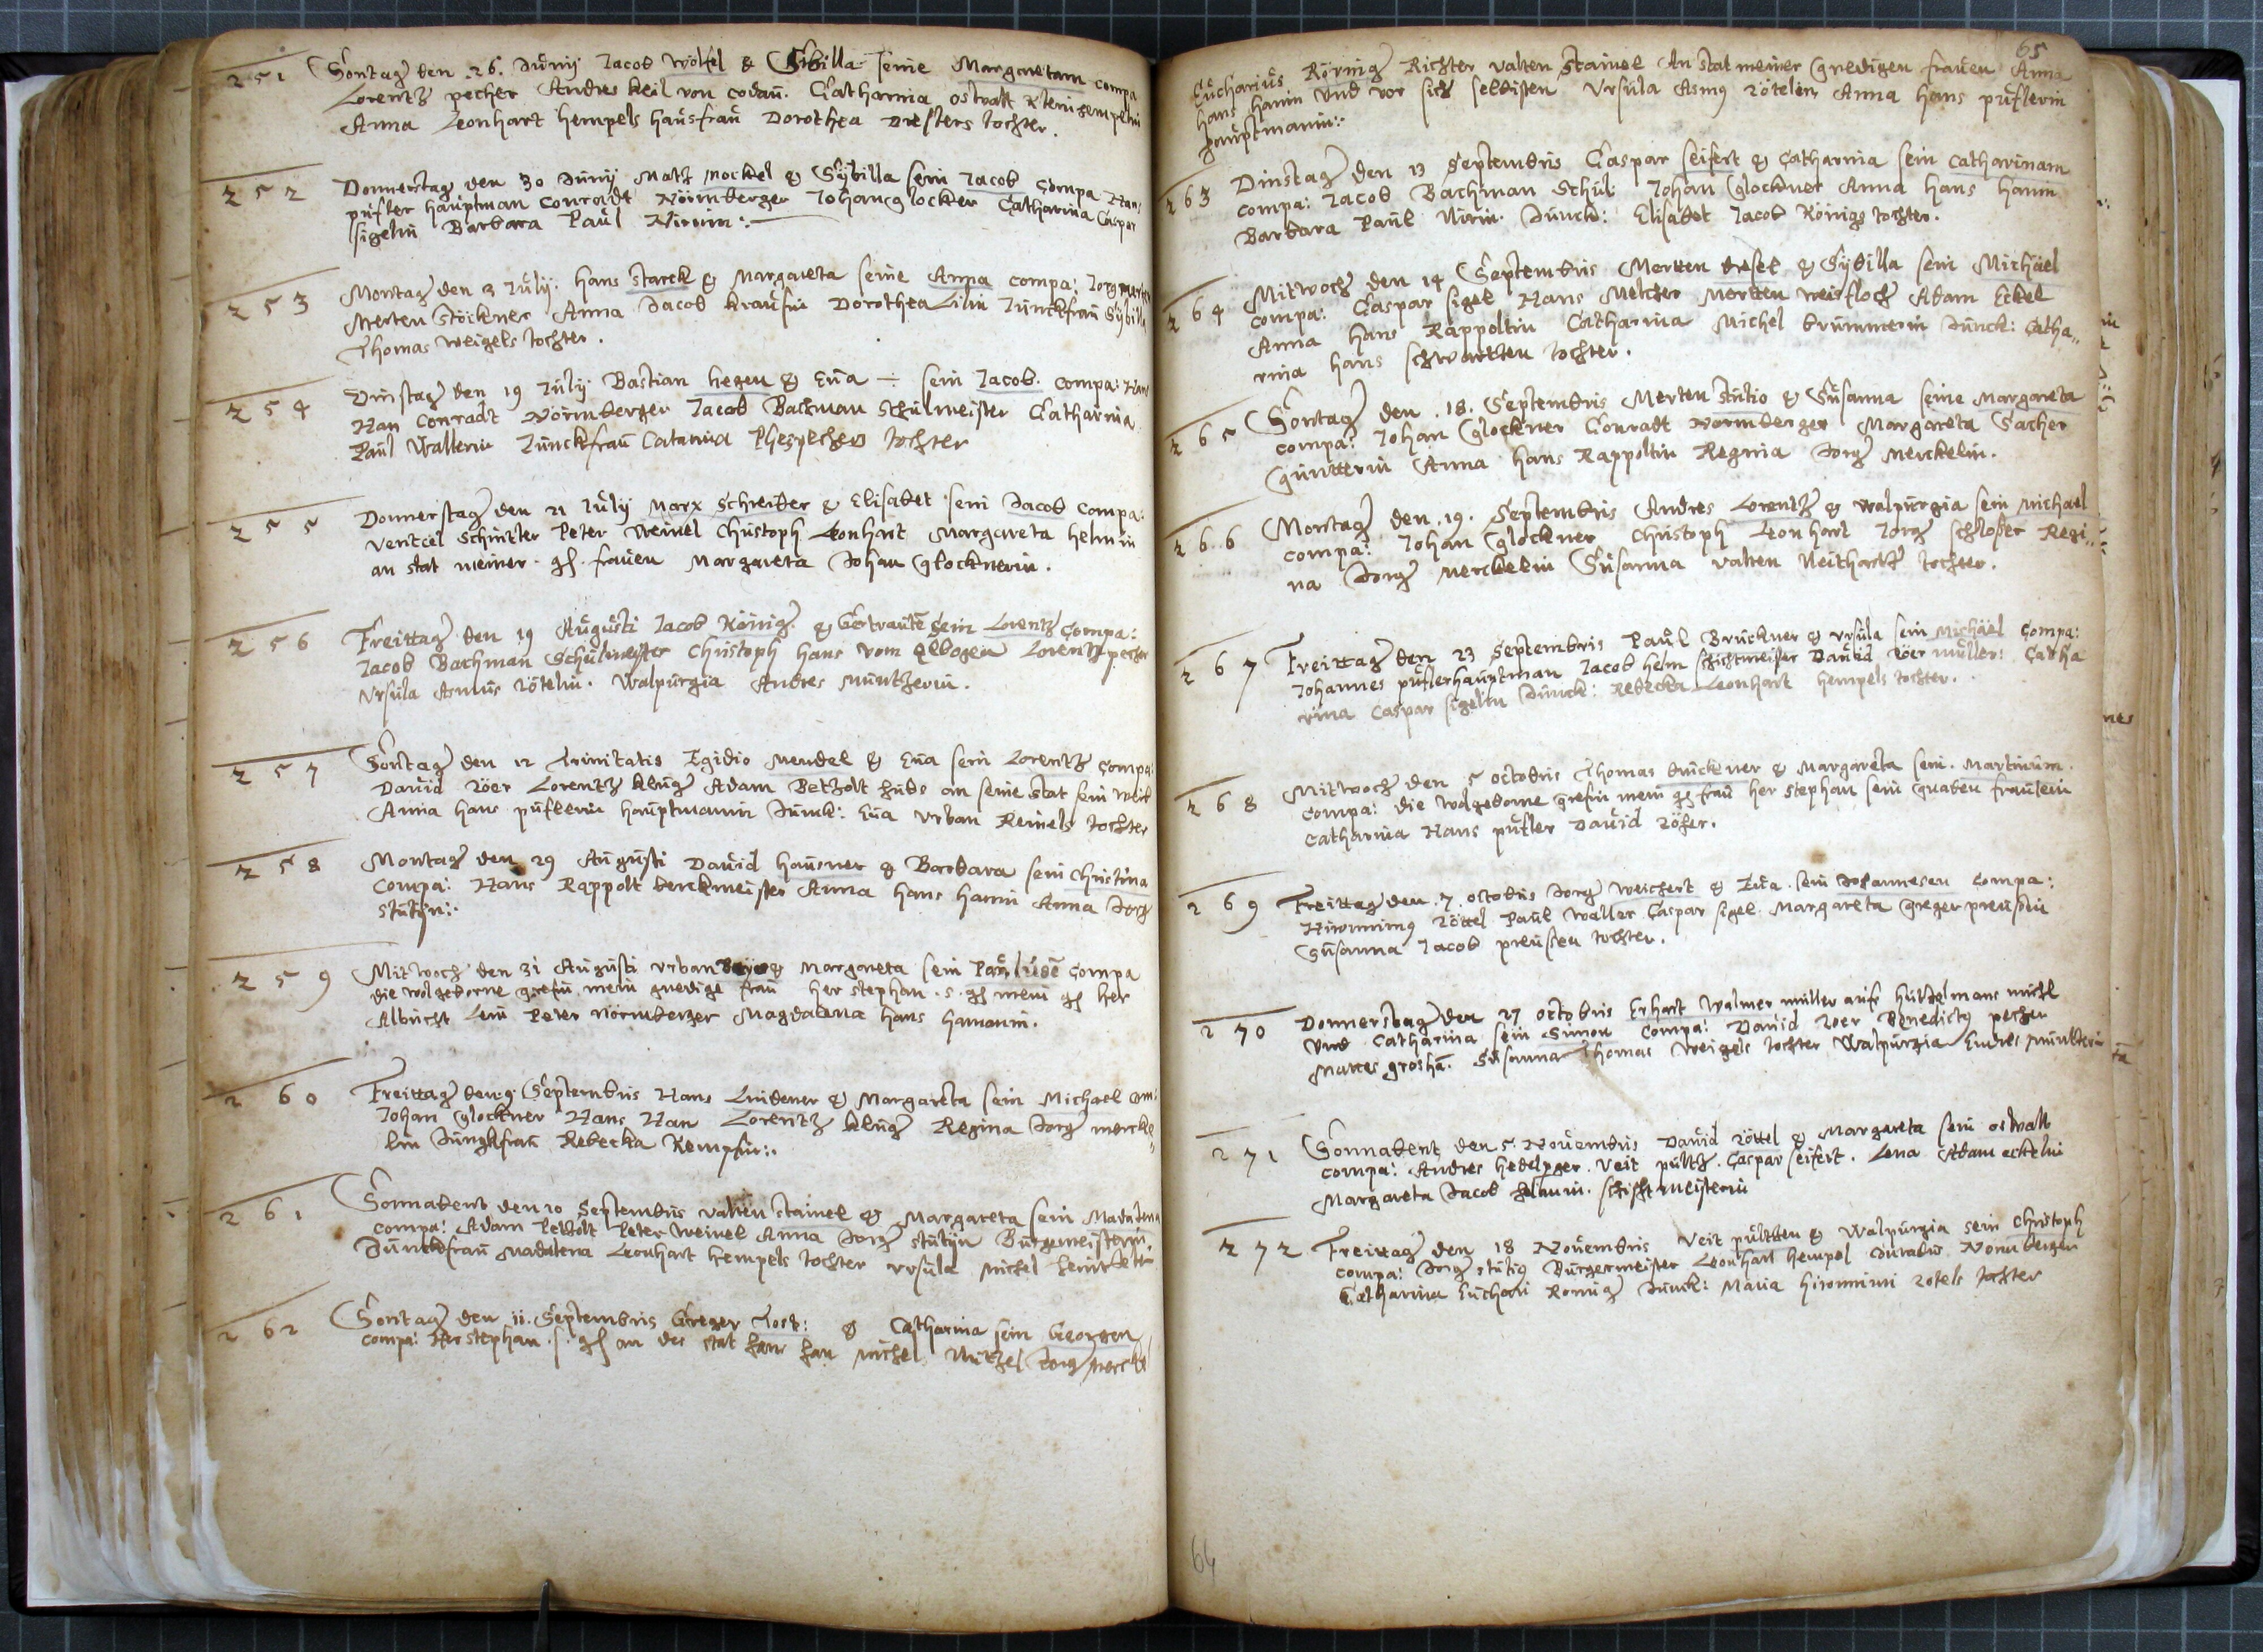 251 Sontag den 26. Junij Jacob wölfel & Sibilla seine Margaretam compa
Lorentz pecher Andres keil von codau. Catharina ostwalt
Anna Leonhart hempels hausfrau Dorothea Dreslers tochter.
252 Donnerstag den 30 Junij Matz mockel & Sÿbilla sein Jacob compa Hans
püfler hauptman Conradt Nörmberger Johan glocker Catharina Caspar
sigelin Barbara Paul Nirnin :
253 Montag den 3 Julÿ. hans starck & Margareta seine Anna compa: Jorg
Merten stöckner Anna Jacob kraussin Dorothea Lilin Junckfrau Sÿbilla
Thomas weigels tochter.
254 Dinstag den 19 Julÿ Bastian hegen & Eua ÷ sein Jacob. compa: Hans
Han Conradt Nörmberger Jacob Bachman Schulmeister Catharina
Paul Walterin Junckfrau Catarina tochter
255 Donnerstag den 21 Julÿ Marx Schreiber & Elisabet sein Jacob compa:
ventcel Schintler Peter weinel Christoph Leonhart Margareta helmin
an stat meiner gf. frauen Margareta Johan glocknerin.
256 Freittag den 19 Augusti Jacob König & Gertraute sein Lorentz compa:
Jacob Bachman Schulmeister Christoph hans vom elbogen Lorentz pecher
Vrsula Asmus rötelin. Walpurgia Andres müntzerin.
257 Sontag den 12 Trinitatis Egidio Mendel & Eua sein Lorentz compa:
Dauid röer Lorentz klug Adam Betzolt an seine stat sein weib
Anna hans püflerin hauptmanin Junck: Eua Vrban Reinels tochter
258 Montag den 29 Augusti Dauid hausner & Barbara sein Christina
compa: Hans Rappolt berckmeister Anna hans hanin Anna Jorg
stutÿn:.
259 Mitwoch den 31 Augusti Vrban & Margareta sein compa
die wolgeborne grefin mein gnedige frau her stephan . s. gf mein gf her
Albrecht Peter Nörmberger Magdalena hans
260 Freittag den 9 Septembris Hans Lindener & Margareta sein Michael com:
Johan glockner Hans Han Lorentz klug Regina Jorg merckl=
lin Jungkfrau Rebecka Kempfin:.
261 Sonnabent den 10 Septembris valten stainel & Margareta sein Madalena
compa: Adam Petzolt Peter weinel Anna Jorg stutÿn Burgemeisterin
Junckfrau Madalena Leonhart hempels tochter Vrsula Michel
262 Sontag den 11. Septembris Greger Jost: & Catharina sein Georgen
compa: Her stephan . s. gf an des stat hans han Michel Jorg merckel
65
Eucharius Röring Richter valten stainel An stat meiner gnedigen frauen Anna
hans hanin Vnd vor sich selbsten Vrsula Asmus rötelin Anna hans püflerin
hauptmanin:.
263 Dinstag den 13 Septembris Caspar seifert & Catharina sein Catharinam
compa: Jacob Bachman Schul: Johan glockner Anna hans hanin
Barbara Paul Nirin. Junck: Elisabet Jacob Königs tochter.
264 Mitwoch den 14 Septembris Merten dresel & Sÿbilla sein Michael
compa: Caspar sigel Hans Melcher Merten weisfloch Adam Eckel
Anna hans Rappoltin Catharina Michel brummerin Junck: Catha„
rina hans schwartzen tochter.
265 Sontag den 18. Septembris Merten stutio & Susanna seine Margareta
compa: Johan glockner Conradt Nörmberger Margareta Sacher
güntterin Anna hans Rappoltin Regina Jorg Merckelin.
266 Montag den 19. Septembris Andres Lorentz & Walpurgia sein Michael
compa: Johan glockner Christoph Leonhart Jorg schlosser Regi„
na Jorg Merckelin Susanna valten Neithartz tochter.
267 Freittag den 23 Septembris Paul Bruckner & Vrsula sein Michael compa:
Johannes püflerhauptman Jacob helm schichtmeister Dauid röer müller: Catha
rina Caspar sigelin Junck: Rebecka Leonhart hempels tochter.
268 Mitwoch den 5 octobris Thomas bruckner & Margareta sein. Martinum.
compa: die wolgeborne grefin mein gf frau her stephan sein gnaden freulein
Catharina Hans püfler Dauid röser.
269 Freittag den 7 octobris Jorg weichert & Eua sein Johannesen compa:
Hironimus röttel Paul Walter Caspar sigel Margareta Greger preussin
Susanna Jacob preussen tochter.
270 Donnerstag den 27 octobris Erhart Walmer müller aufs hültzelmans mühl
Vnd Catharina sein Simon compa: Dauid röer Benedictus pecher
Mattes Susanna Thomas weigels tochter Walpurgia Endres müntzerin
271 Sonnabent den 5 Nouembris Dauid röttel & Margareta sein oswalt
compa: Andres Veit pültz. Caspar seifert. Lena Adam eckelin
Margareta Jacob helmin. schichtmeisterin
272 Freittag den 18 Nouembris Veit pültzen & Walpurgia sein Christoph
compa: Jorg stutig Bürgermeister Leonhart hempel Nörmberger
Catharina Euchari Roring Junck: Maria hironimi rotels tochter
64